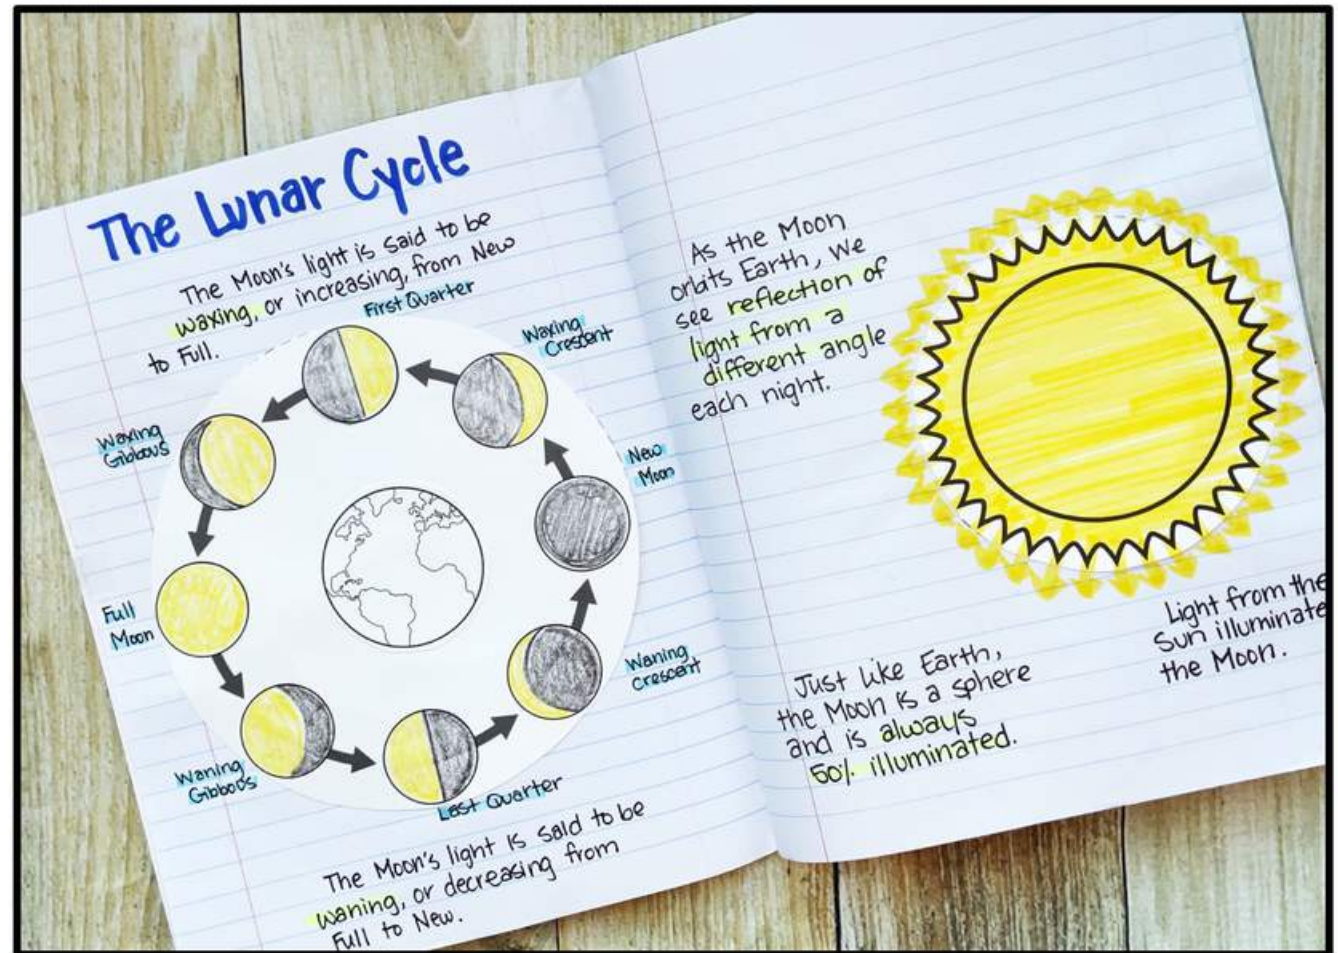 The Lunar Cycle
The Moon's light is said to be
waxing, or increasing, from New
to Full.
First Quarter
Waxing
Crescent
Waxing
Gibbous
New
Moon
Full
Moon
Waning
Crescent
Waning
Gibbous
Last Quarter
The Moon's light is said to be
waning, or decreasing from
Full to New.
As the Moon
orbits Earth, we
see reflection of
light from a
different angle
each night.
Just like Earth,
the Moon is a sphere
and is always
50% illuminated.
Light from the
Sun illuminate
the Moon.